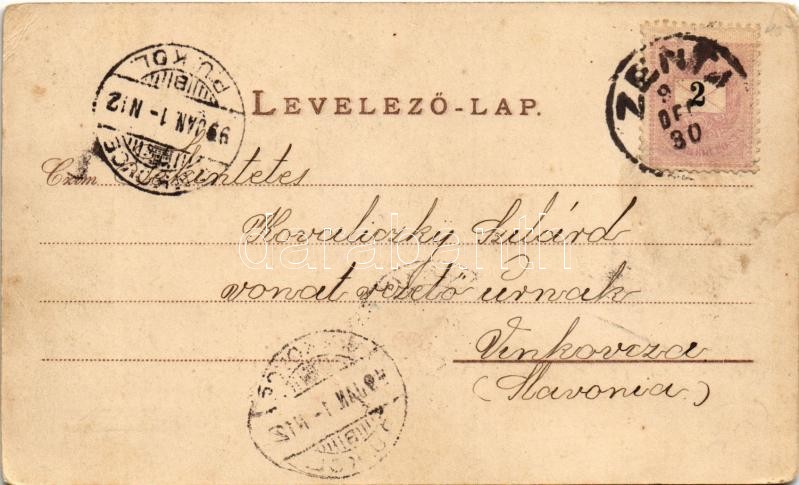 LEVELEZŐ-LAP.
ZENTA
9 DEC 30
2
PU. KOL.
99 JAN. 1 - N12
Czim Tekintetes
Kovaliczky Szilárd
darabanth
vonat vezető úrnak
Vinkovcza
(Slavonia)
JAN 1 - N12